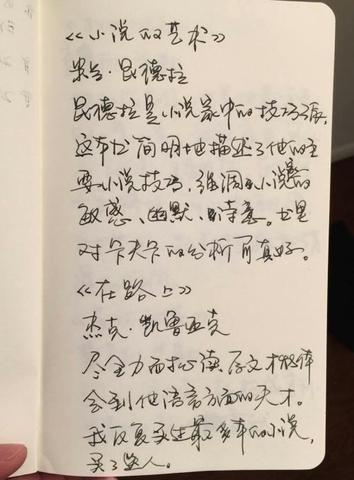 《小说的艺术》
米兰·昆德拉
昆德拉是小说家中的技巧派,
这本书简明地描述了他的主
要小说技巧,强调小说的
敏感、幽默、诗意。书里
对卡夫卡的分析可真好。
《在路上》
杰克·凯鲁亚克
尽全力而 读原文才能体
会到他语言方面的天才。
我反复买进最多本的小说,
买了送人。